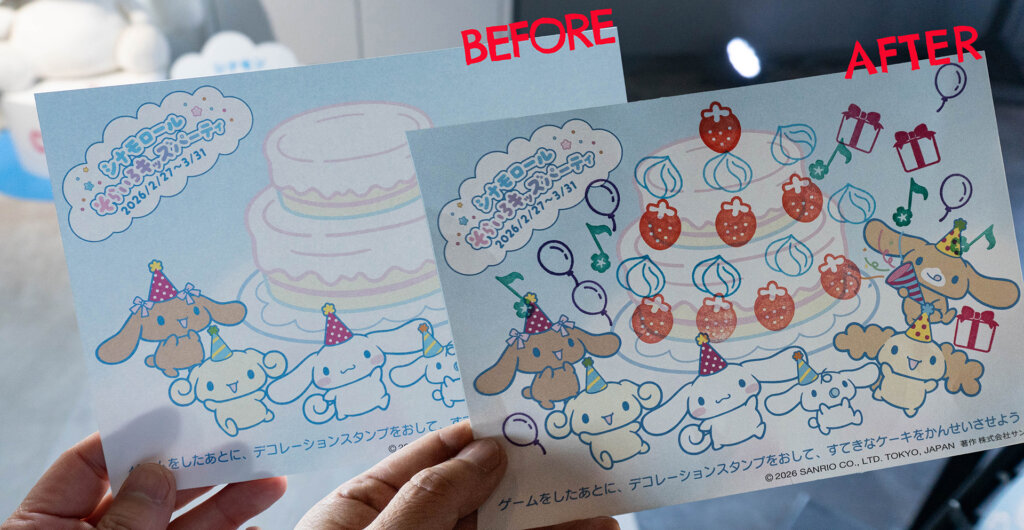 BEFORE
AFTER
シナモン
シナモロール
そらいろキッズパーティ
2026/2/27〜3/31
ゲームをしたあとに、デコレーションスタンプをおして、すて
シナモロール
そらいろキッズパーティ
2026/2/27〜3/31
ゲームをしたあとに、デコレーションスタンプをおして、すてきなケーキをかんせいさせよう
©2026 SANRIO CO., LTD. TOKYO, JAPAN 著作 株式会社サン